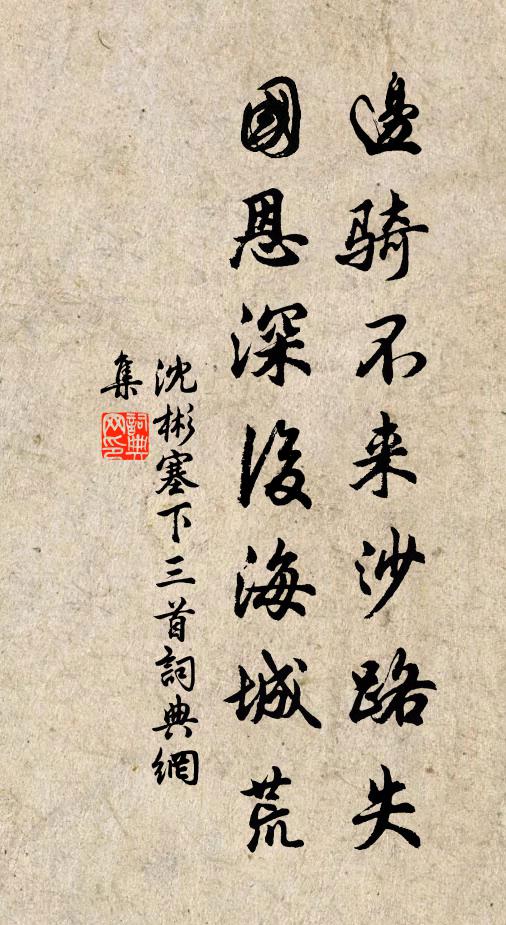 邊騎不来沙路失
國恩深後海城荒
沈彬塞下三首詞典網
集
詞典
网印